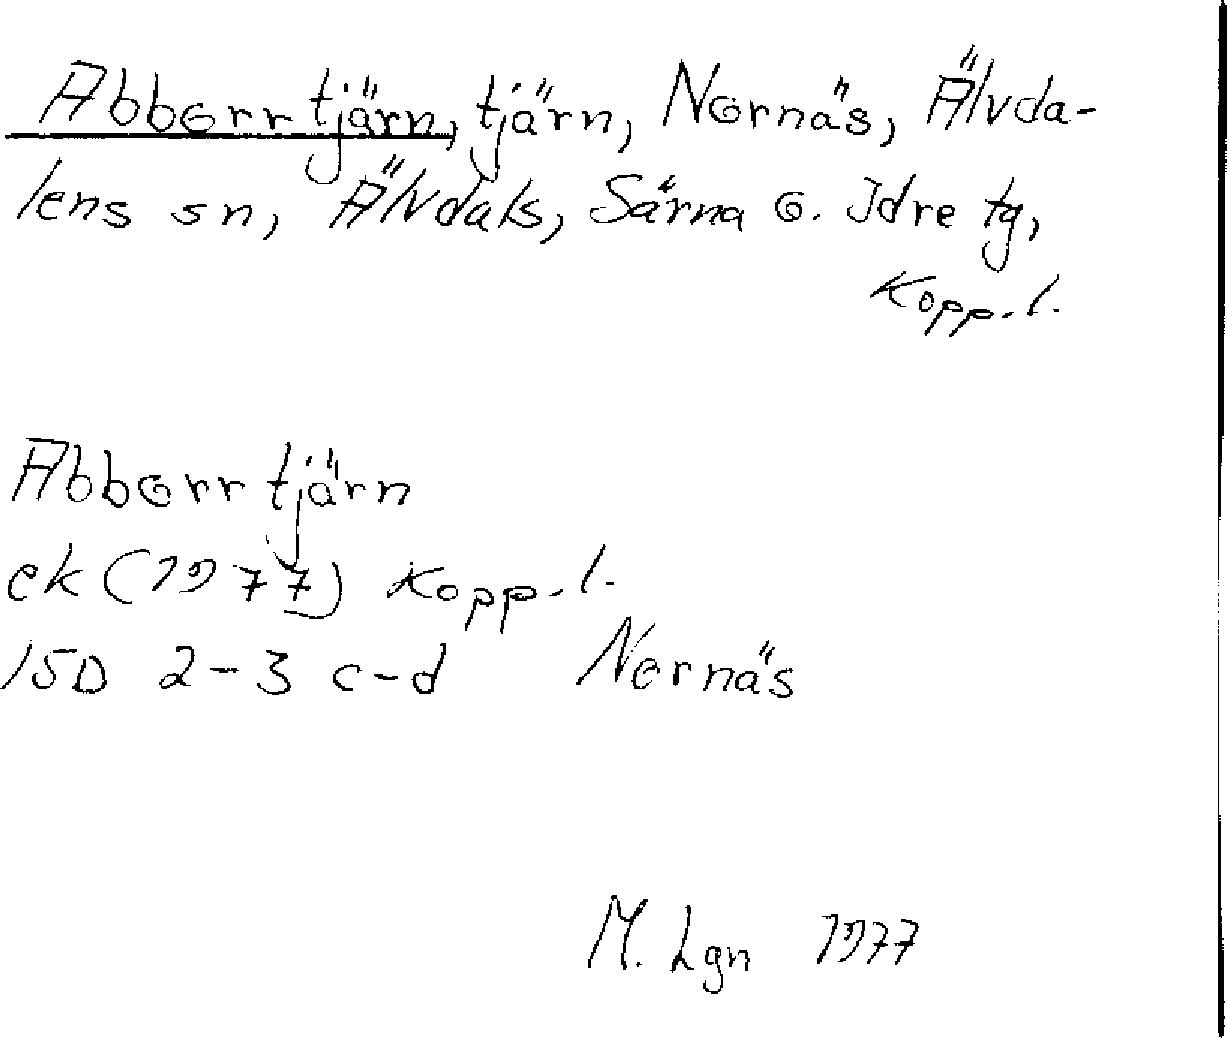 Abborrtjärn, tjärn, Nornäs, Älvda-
lens sn, Älvdals, Särna o. Idre tg,
Kopp. l.
Abborrtjärn
ek (1977) Kopp. l.
15D 2-3 c-d Nornäs
M. Lgn 1977